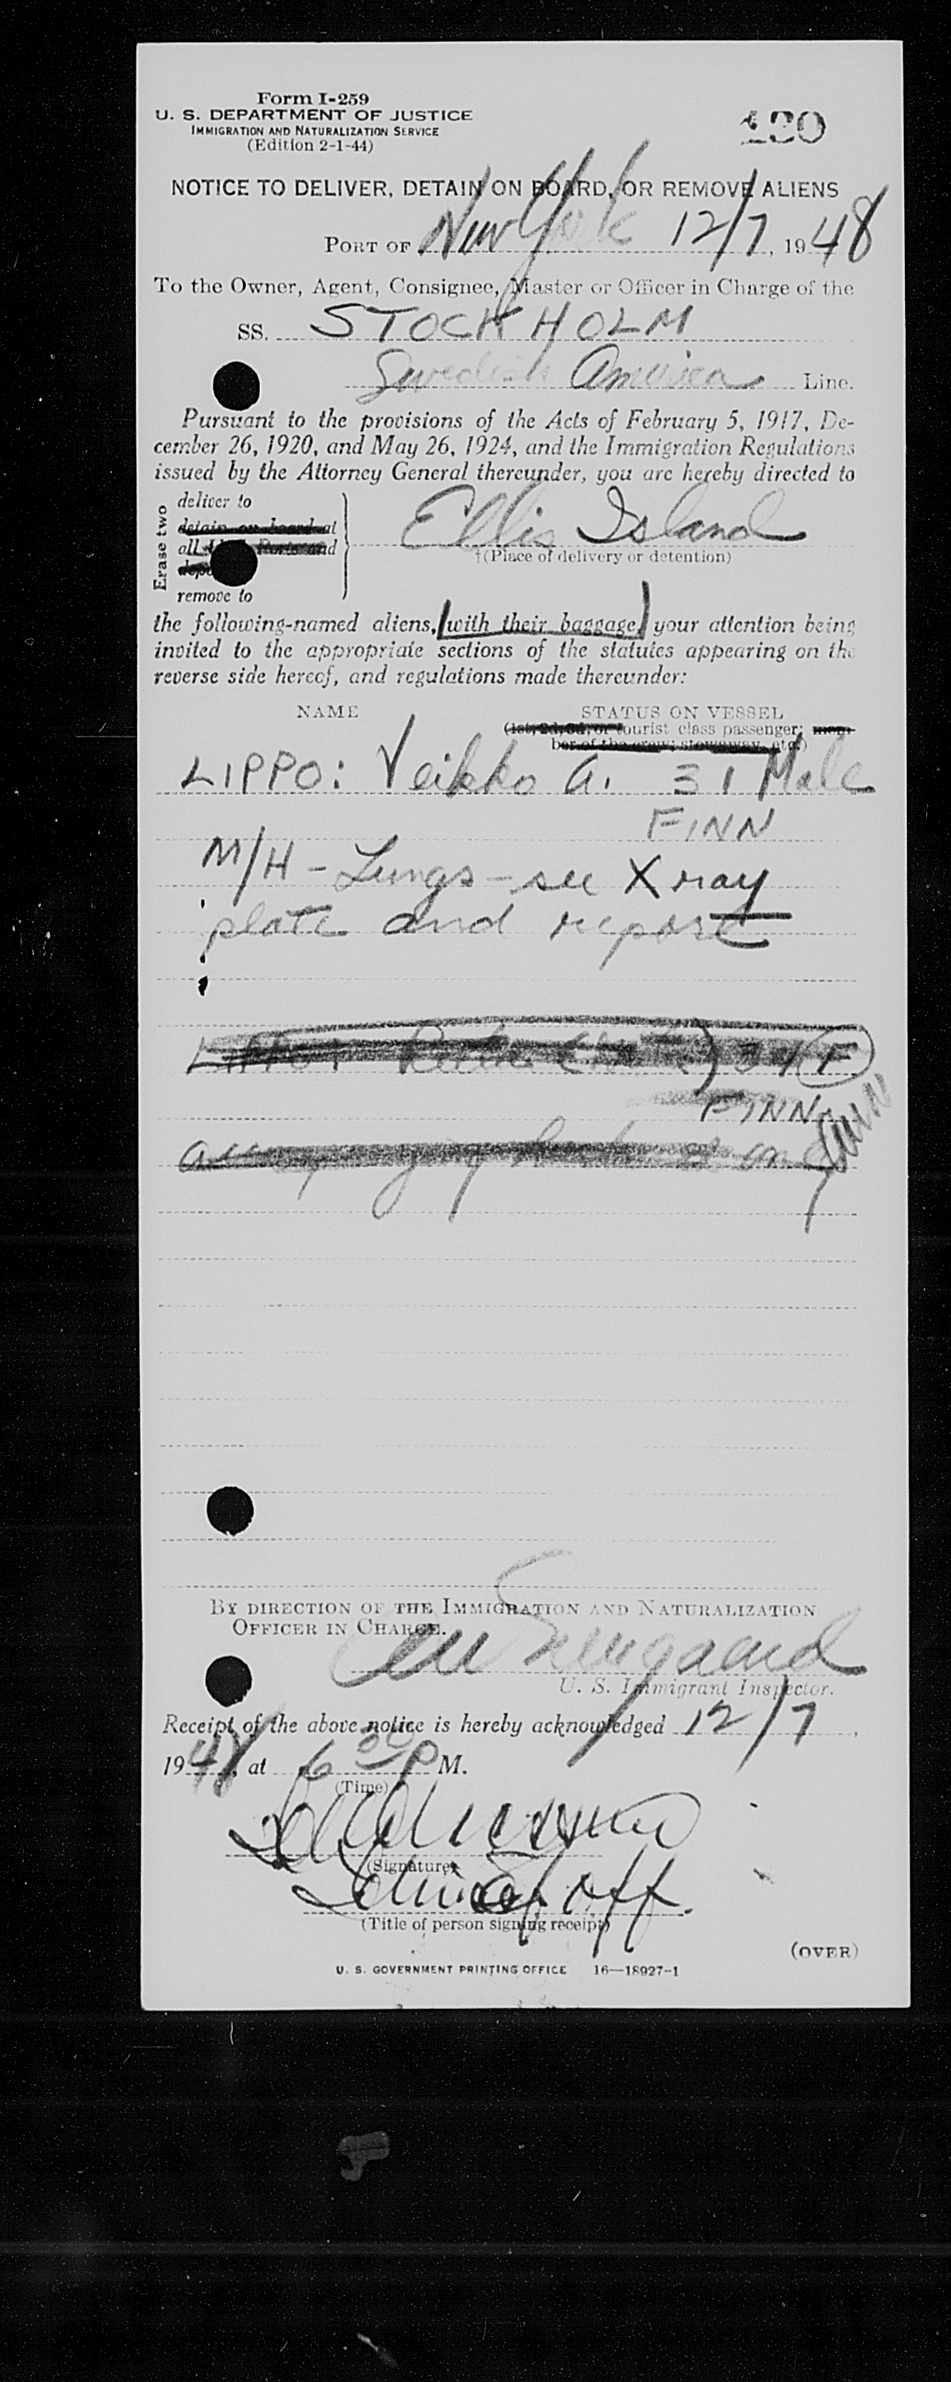 Form I-259
U. S. DEPARTMENT OF JUSTICE
IMMIGRATION AND NATURALIZATION SERVICE
(Edition 2-1-44)
120
NOTICE TO DELIVER, DETAIN ON BOARD, OR REMOVE ALIENS
PORT OF New York 12/7, 1948
To the Owner, Agent, Consignee, Master or Officer in Charge of the
SS. STOCKHOLM
Swedish America Line.
Pursuant to the provisions of the Acts of February 5, 1917, De-
cember 26, 1920, and May 26, 1924, and the Immigration Regulations
issued by the Attorney General thereunder, you are hereby directed to
Erase two
deliver to
detain on board at
all Ports and
remove to
Ellis Island
†(Place of delivery or detention)
the following-named aliens, (with their baggage) your attention being
invited to the appropriate sections of the statutes appearing on the
reverse side hereof, and regulations made thereunder:
NAME STATUS ON VESSEL
(1st, 2d, 3d, or tourist class passenger; mem-
ber of the crew; stowaway, etc.)
LIPPO: Veikko A. 31 Male
FINN
M/H - Lungs - see X ray
plate and report
31 F
FINN
accompanying husband
BY DIRECTION OF THE IMMIGRATION AND NATURALIZATION
OFFICER IN CHARGE.
U. S. Immigrant Inspector.
Receipt of the above notice is hereby acknowledged 12/7,
1948, at 6 30 P M.
(Time)
(Signature)
Off.
(Title of person signing receipt)
(OVER)
U. S. GOVERNMENT PRINTING OFFICE 16—18927-1